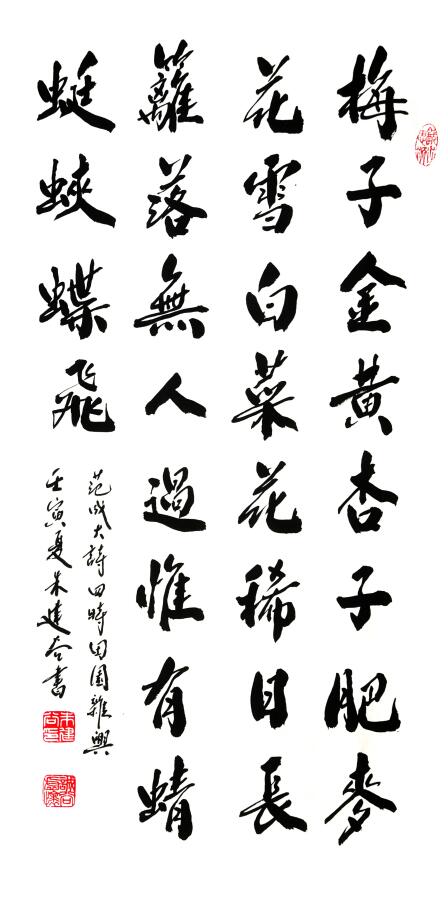 梅子金黃杏子肥麥
花雪白菜花稀日長
籬落無人過惟有蜻
蜓蛺蝶飛
范成大詩四時田園雜興
壬寅夏朱建書